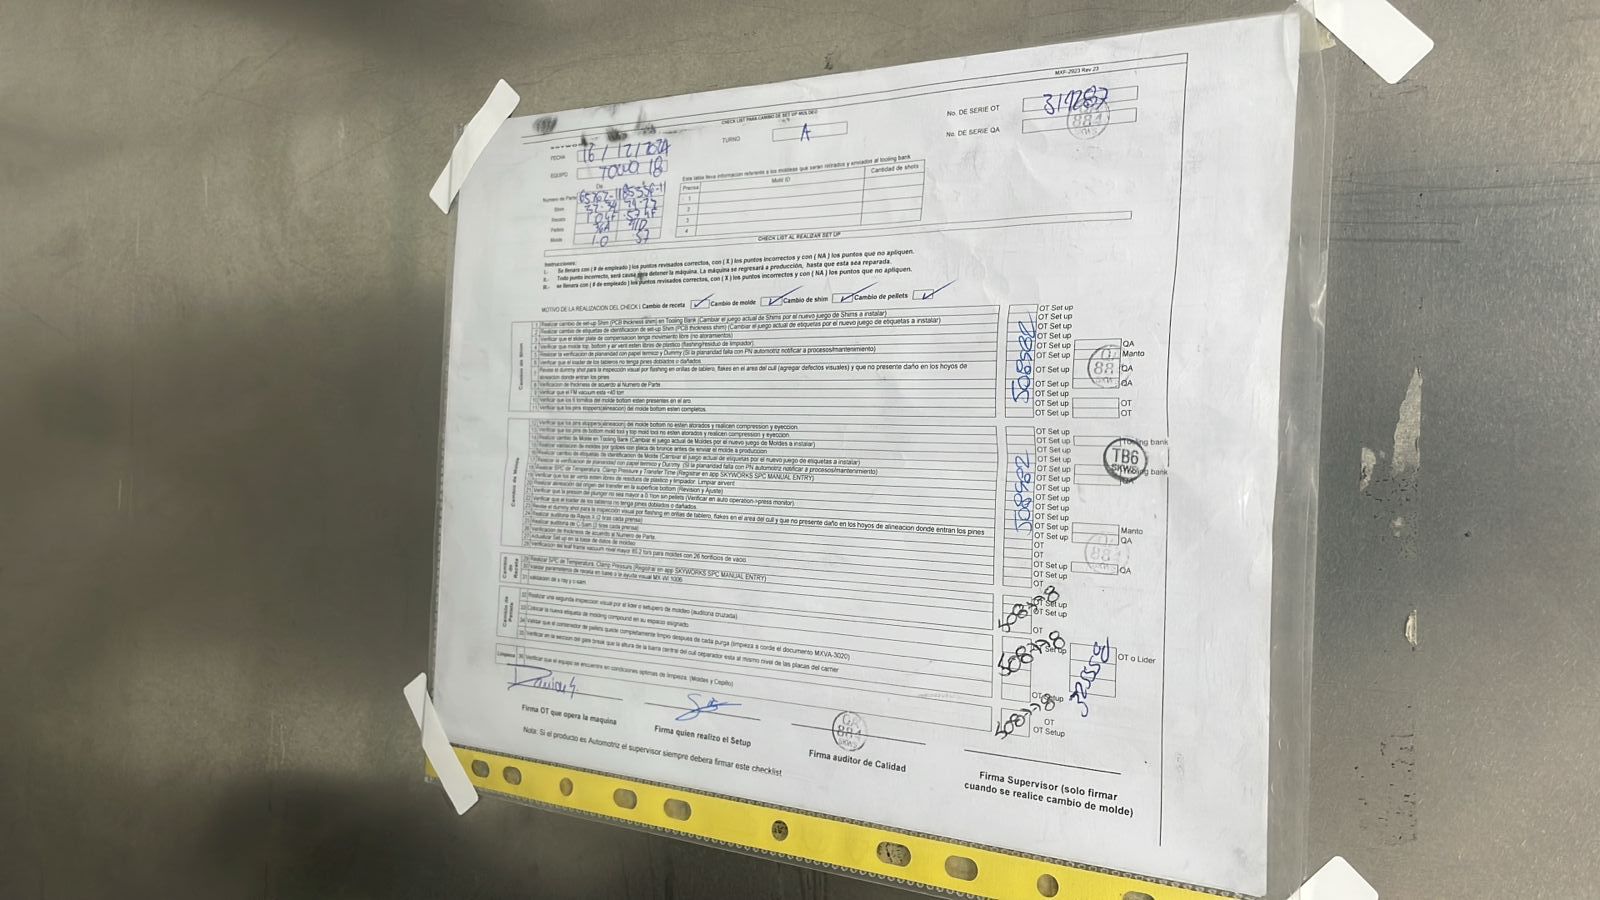 MXF-2923 Rev 23
CHECK LIST PARA CAMBIO DE SET UP MOLDEO
No. DE SERIE OT 317287
No. DE SERIE QA
TURNO A
FECHA 16/12/2024
EQUIPO
Numero de Parte
Shim
Receta
Pellets
Molde 1.0 57
Esta tabla lleva informacion referente a los moldeas que seran retirados y enviados al tooling bank
Prensa Mold ID Cantidad de shots
1
2
3
4
CHECK LIST AL REALIZAR SET UP
Instrucciones:
I.- Se llenara con ( # de empleado ) los puntos revisados correctos, con ( X ) los puntos incorrectos y con ( NA ) los puntos que no apliquen.
II.- Todo punto incorrecto, será causa para detener la máquina. La máquina se regresará a producción, hasta que esta sea reparada.
III.- se llenara con ( # de empleado ) los puntos revisados correctos, con ( X ) los puntos incorrectos y con ( NA ) los puntos que no apliquen.
MOTIVO DE LA REALIZACION DEL CHECK L Cambio de receta Cambio de molde Cambio de shim Cambio de pellets
Cambio de Shim
1 Realizar cambio de set-up Shim (PCB thickness shim) en Tooling Bank (Cambiar el juego actual de Shims por el nuevo juego de Shims a instalar) OT Set up
2 Realizar cambio de etiquetas de identificacion de set-up Shim (PCB thickness shim) (Cambiar el juego actual de etiquetas por el nuevo juego de etiquetas a instalar) OT Set up
3 Verificar que el slider plate de compensacion tenga movimiento libre (no atoramientos) OT Set up
4 Verificar que molde top, bottom y air vent esten libres de plastico (flashing/residuo de limpiador). OT Set up QA
5 Realizar la verificacion de planaridad con papel termico y Dummy (Si la planaridad falla con PN automotriz notificar a procesos/mantenimiento) OT Set up Manto
6 Verificar que el loader de los tableros no tenga pines doblados o dañados. OT Set up
7 Revise el dummy shot para la inspección visual por flashing en orillas de tablero, flakes en el area del cull (agregar defectos visuales) y que no presente daño en los hoyos de alineacion donde entran los pines OT Set up QA
8 Verificacion de thickness de acuerdo al Numero de Parte. OT Set up QA
9 Verificar que el FM vacuum esta <40 torr OT Set up
10 Verificar que los 6 tornillos del molde bottom esten presentes en el aro. OT Set up OT
11 Verificar que los pins stoppers(alineacion) del molde bottom esten completos. OT Set up OT
Cambio de Molde
12 Verificar que los pins stoppers(alineacion) del molde bottom no esten atorados y realicen compression y eyeccion. OT Set up
13 Verificar que los pins de bottom mold tool y top mold tool no esten atorados y realicen compression y eyeccion. OT Set up Tooling bank
14 Realizar cambio de Molde en Tooling Bank (Cambiar el juego actual de Moldes por el nuevo juego de Moldes a instalar) OT Set up
15 Realizar validacion de moldes por golpes con placa de bronce antes de enviar el molde a produccion Tooling bank
16 Realizar cambio de etiquetas de identificacion de Molde (Cambiar el juego actual de etiquetas por el nuevo juego de etiquetas a instalar)
17 Realizar la verificacion de planaridad con papel termico y Dummy (Si la planaridad falla con PN automotriz notificar a procesos/mantenimiento)
18 Realizar SPC de Temperatura, Clamp Pressure y Transfer Time (Registrar en app SKYWORKS SPC MANUAL ENTRY)
19 Verificar que los air vents esten libres de residuos de plastico y limpiador. Limpiar airvent
20 Realizar alineación del origen del transfer en la superficie bottom (Revision y Ajuste)
21 Verificar que la presion del plunger no sea mayor a 0.1ton sin pellets (Verificar en auto operation->press monitor)
22 Verificar que el loader de los tableros no tenga pines doblados o dañados.
23 Revise el dummy shot para la inspección visual por flashing en orillas de tablero, flakes en el area del cull y que no presente daño en los hoyos de alineacion donde entran los pines Manto
24 Realizar auditoria de Rayos X (2 tiras cada prensa) QA
25 Realizar auditoria de C-Sam (2 tiras cada prensa) OT
26 Verificacion de thickness de acuerdo al Numero de Parte. OT
27 Actualizar Set up en la base de datos de moldeo OT Set up QA
28 Verificacion del leaf frame vacuum nivel mayor 85.2 torrs para moldes con 26 horificios de vacio OT Set up
Cambio de Receta
29 Realizar SPC de Temperatura, Clamp Pressure (Registrar en app SKYWORKS SPC MANUAL ENTRY) OT Set up
30 Validar parametros de receta en base a la ayuda visual MX-WI 1006 OT Set up
31 validacion de x ray y c-sam OT
Cambio de Pellets
32 Realizar una segunda inspeccion visual por el lider o setupero de moldeo (auditoria cruzada) OT o Lider
33 Colocar la nueva etiqueta de molding compound en su espacio asignado
34 Validar que el contenedor de pellets quede completamente limpio despues de cada purga (limpieza a corde el documento MXVA-3020)
35 Verificar en la seccion del gate break que la altura de la barra central del cull ceparador esta al mismo nivel de las placas del carrier OT Setup
Limpieza 36 Verificar que el equipo se encuentre en condiciones optimas de limpieza. (Moldes y Cepillo) OT
OT Setup
508982
508982
408778
408778
408778
TB6
SKWS
QA
884
SKWS
Firma OT que opera la maquina
Firma quien realizo el Setup
Firma auditor de Calidad
Firma Supervisor (solo firmar
cuando se realice cambio de molde)
Nota: Si el producto es Automotriz el supervisor siempre debera firmar este checklist